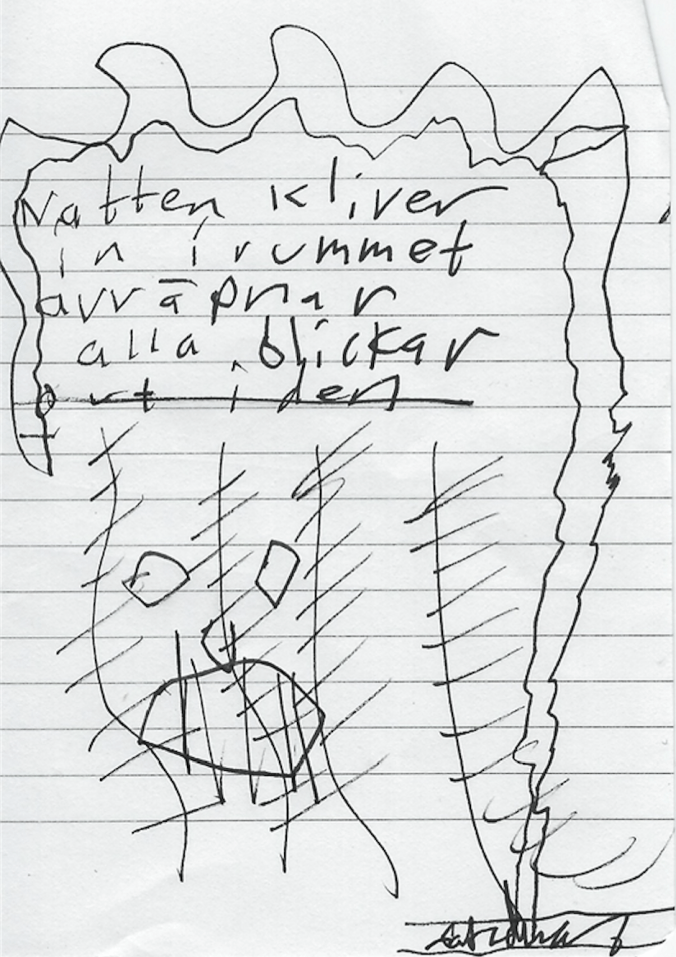 Natten kliver
in i rummet
avväpnar
alla blickar
ort iden